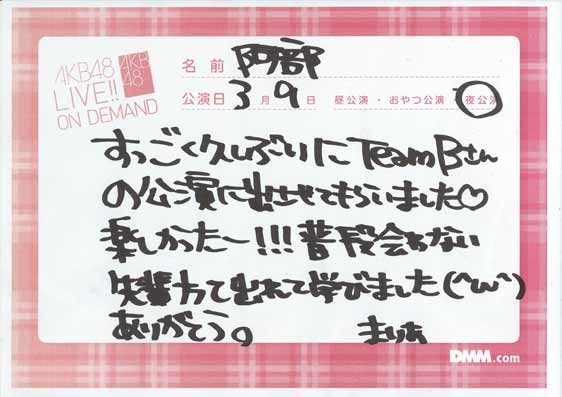 AKB48
LIVE!!
ON DEMAND
AKB
48
名前 阿部
公演日 3月9日 昼公演・おやつ公演 夜公演
すっごく久しぶりにTeamBさん
の公演に出させてもらいました♡
楽しかったー!!!普段会わない
先輩方と出れて学びました(^ω^)
ありがとう。 まりあ
DMM.com